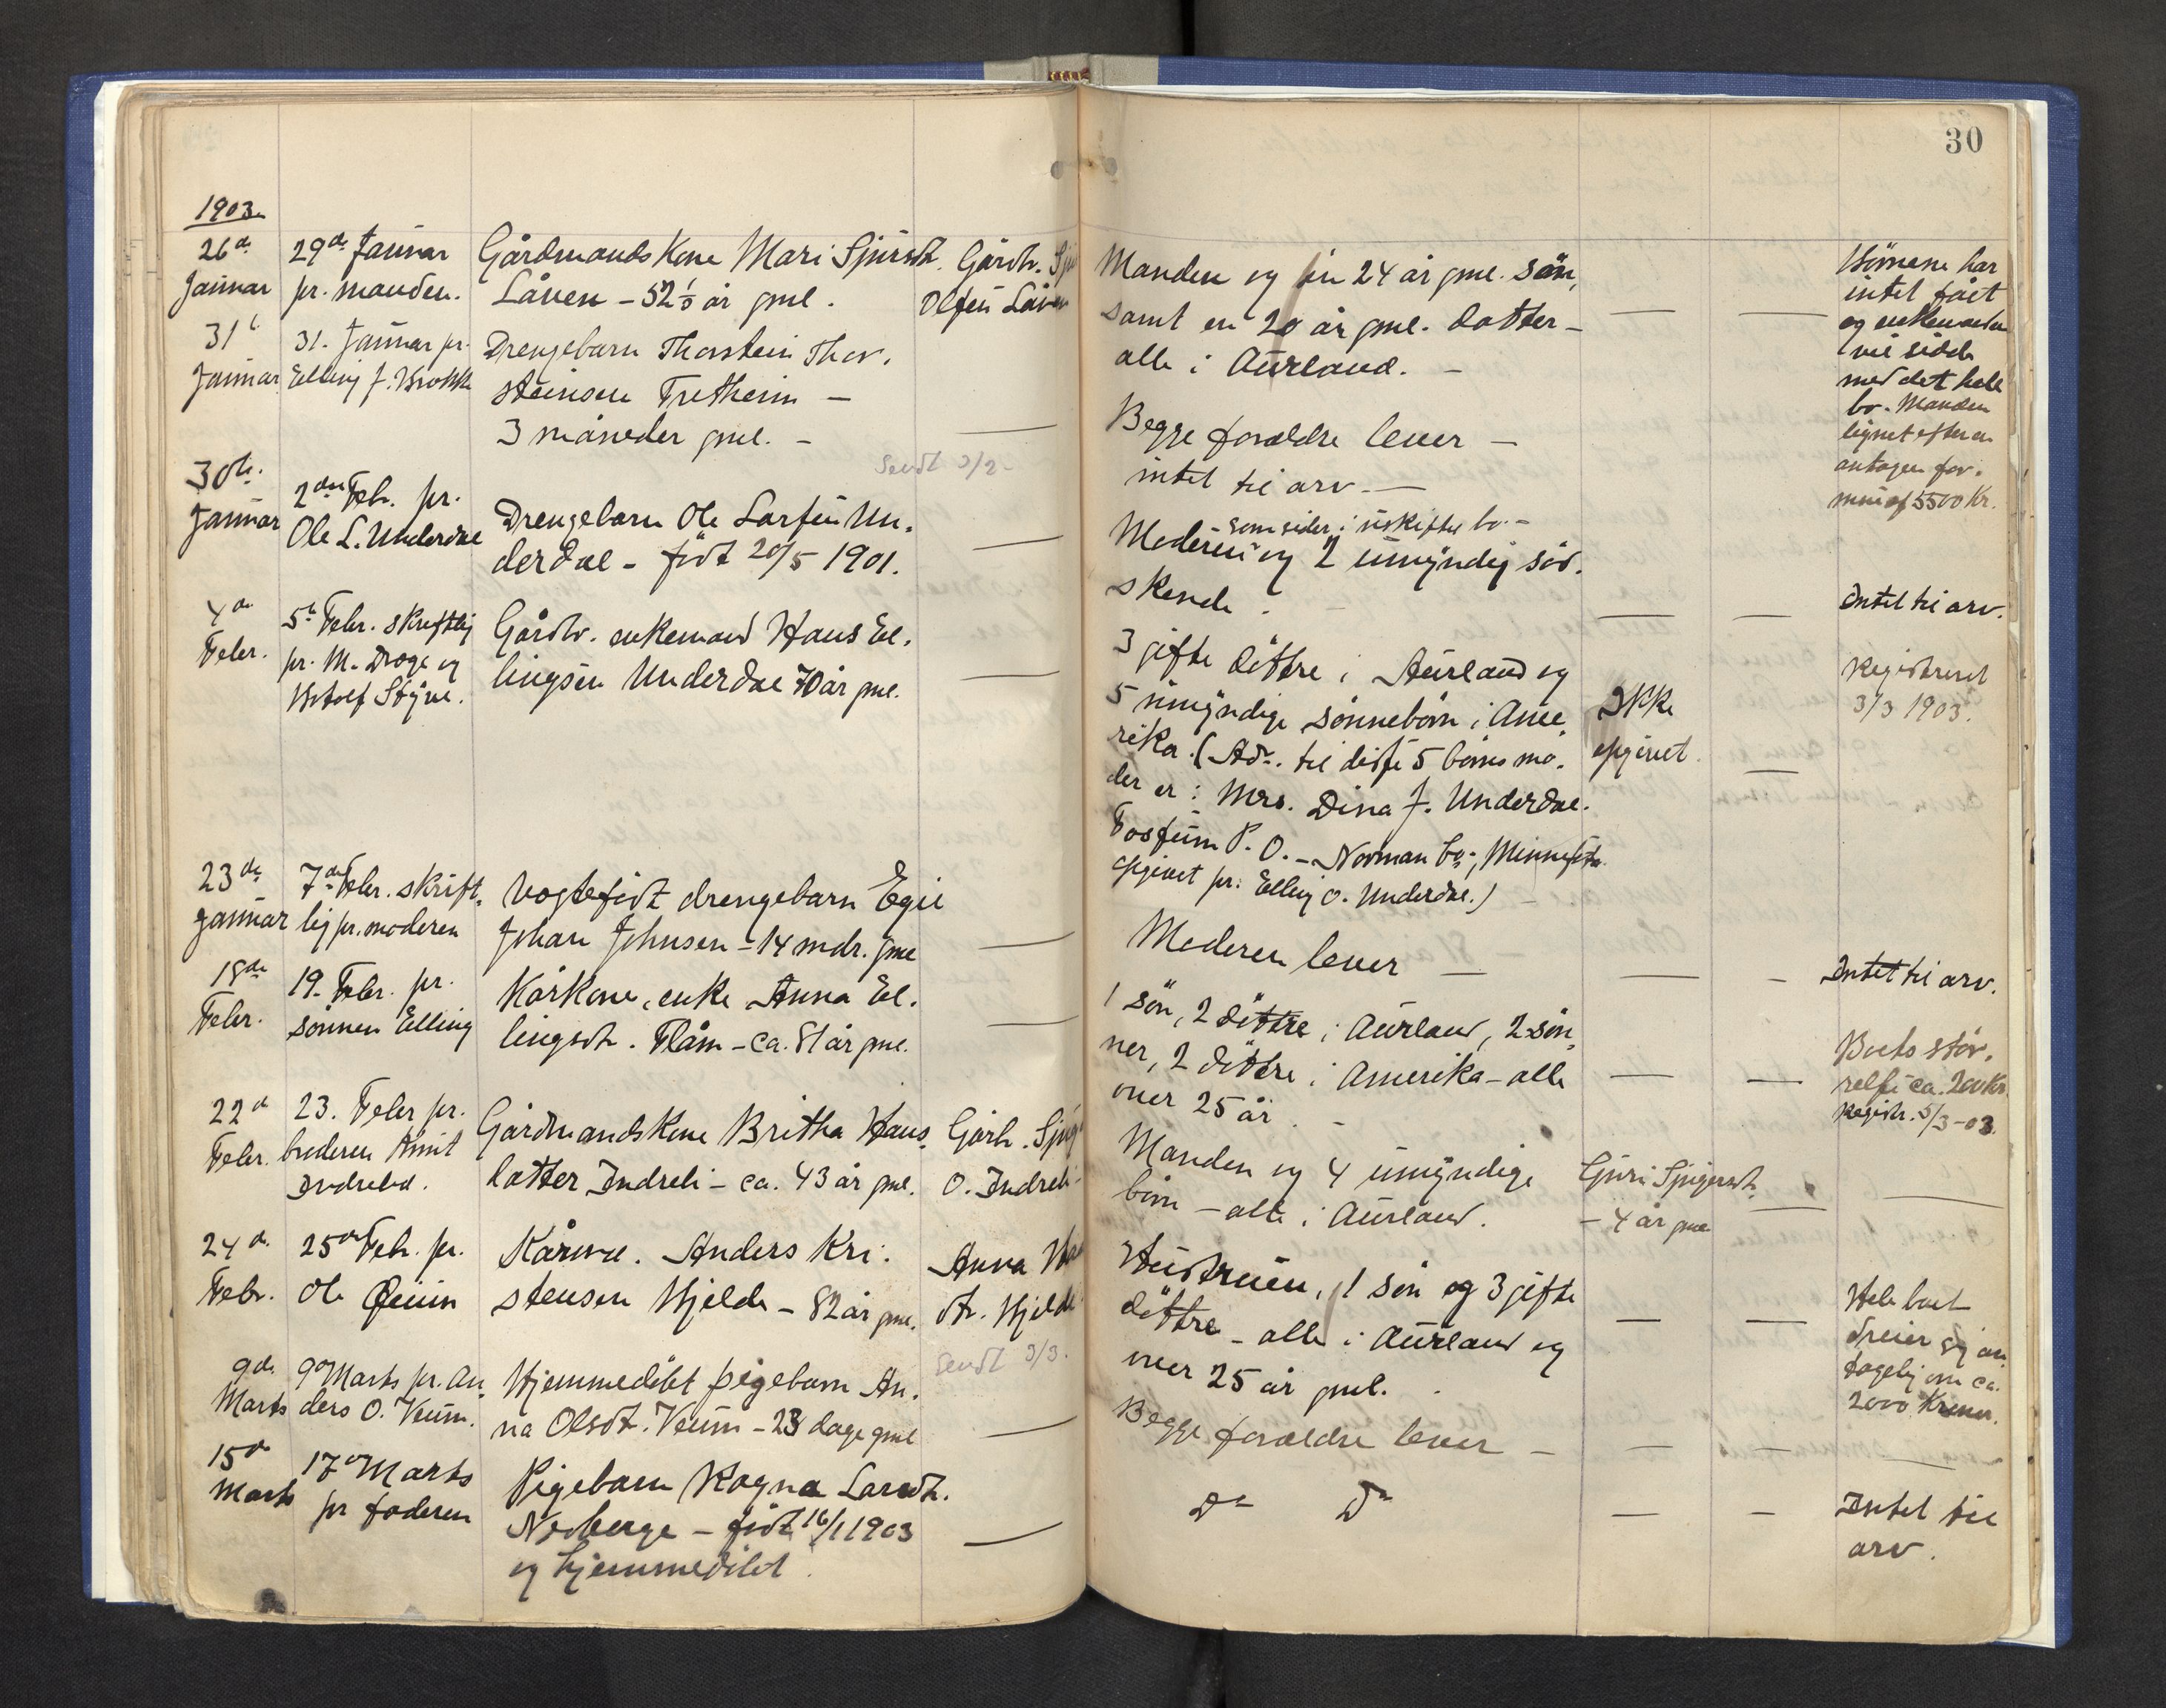 30
1903.
26de
Januar
29de Januar
pr. manden.
Gårdmandskone Mari Sjursdt.
Låven - 52 1/2 år gml.
Gårdbr. Sju
Olsen Låven
Manden og en 24 år gml. søn,
samt en 20 år gml. datter -
alle i Aurland. -
Børnene har
intet fået
og enkemanden
vil sidde
med det hele
bo. Manden
lignet efter en
antagen for-
mue af 5500 Kr.
31
Januar
31. Januar pr.
Elling J. Brekke
Drengebarn Thorstein Thor-
steinsen Fretheim -
3 måneder gml. -
Begge forældre lever -
intet til arv. -
Sendt 3/2 -
30te
Januar
2den Febr. pr.
Ole L. Underdal
Drengebarn Ole Larsen Un-
derdal - født 20/5 1901.
som sider i uskiftet bo. -
Moderen og 2 umyndig søs-
kende.
Intet til arv.
4de
Febr.
5te Febr. skriftlig
pr. M. Droge og
Botolf Styve.
Gårdbr. enkemand Hans El-
lingsen Underdal 70 år gml.
3 gifte døttre i Aurland og
5 umyndige sønnebørn i Ame-
rika. (Adr. til disse 5 børns mo-
der er: Mrs. Dina J. Underdal.
Fossum P. O. - Norman Co., Minnesota
opgivet pr. Elling O. Underdal.)
Ikke
opgivet.
Registreret
3/3 1903.
23de
Januar
7de Febr. skrift-
lig pr. moderen
Uægtefødt drengebarn Egil
Johan Johnsen - 14 mdr. gml
Moderen lever -
Intet til arv.
18de
Febr.
19. Febr. pr.
sønnen Elling
Kårkone, enke Anna El-
lingsdt. Flåm - ca. 81 år gml.
1 søn, 2 døttre i Aurland, 2 søn-
ner, 2 døttre i Amerika - alle
over 25 år. -
Boets stør-
relse ca. 200 Kr.
Registr. 5/3 - 03.
22de
Febr.
23. Febr pr.
broderen Knut
Indrelid.
Gårdmandskone Britha Hans-
datter Indreli - ca. 43 år gml.
Gårb. Sjug
O. Indreli -
Manden og 4 umyndige
børn - alle i Aurland.
Guri Sjugursdt.
- 4 år gml
24de
Febr.
25de Feb. pr.
Ole Øium
Kårmd. Anders Kri-
stensen Hjelde - 82 år gml.
Anna
dtr. Hjelde
Hustruen, 1 søn og 3 gifte
døttre - alle i Aurland og
over 25 år gml.
Hele boet
dreier sig an-
tagelig om ca.
2000 Kroner.
Sendt 3/3.
9de
Marts
9de Marts pr. An-
ders O. Veum.
Hjemmedøbt pigebarn An-
na Olsdt. Veum - 23 dage gml
Begge forældre lever -
15de
Marts
17de Marts
pr faderen
Pigebarn Ragna Larsdt.
Nesberge - født 16/1 1903
og hjemmedøbt.
Do Do
Intet til
arv.